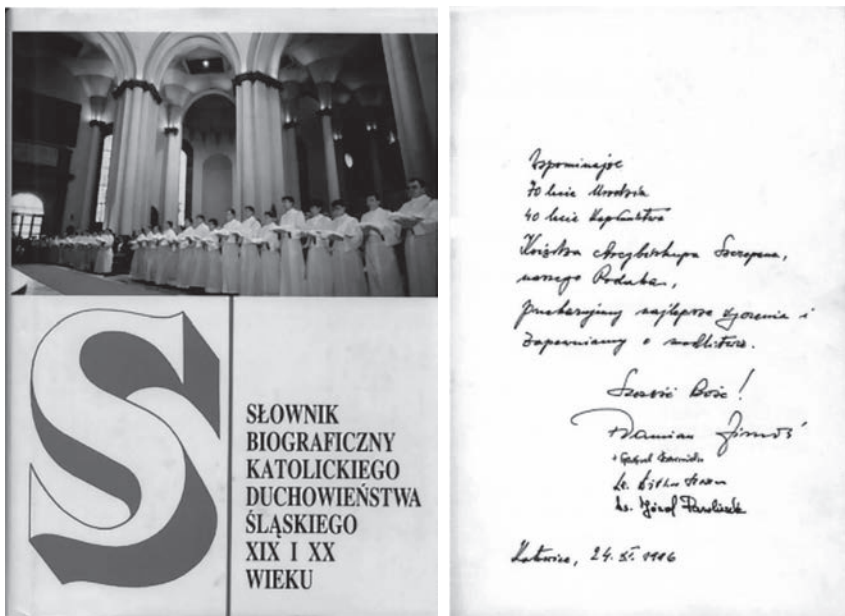 SŁOWNIK
BIOGRAFICZNY
KATOLICKIEGO
DUCHOWIEŃSTWA
ŚLĄSKIEGO
XIX I XX
WIEKU
Wspominając
70 lecie Urodzin
40 lecie Kapłaństwa
Księdza Arcybiskupa Szczepana,
naszego Rodaka,
przekazujemy najlepsze życzenia i
zapewniamy o modlitwie.
Szczęść Boże!
+ Damian Zimoń
ks. Józef Pawliczek
Katowice, 24. XI. 1996